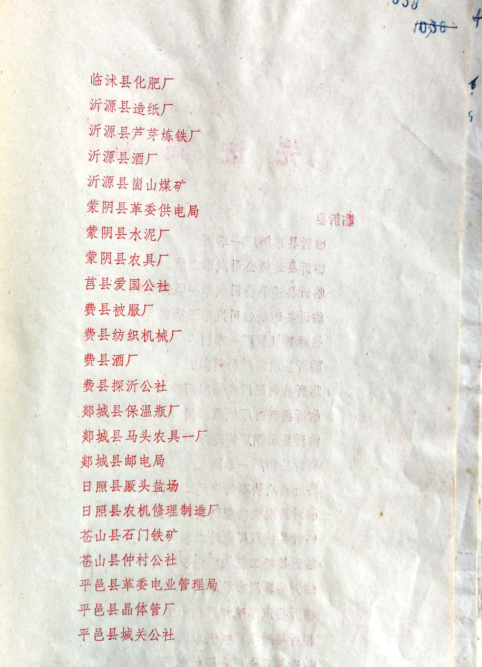 临沭县化肥厂
沂源县造纸厂
沂源县芦芽炼铁厂
沂源县酒厂
沂源县崮山煤矿
蒙阴县革委供电局
蒙阴县水泥厂
蒙阴县农具厂
莒县爱国公社
费县被服厂
费县纺织机械厂
费县酒厂
费县探沂公社
郯城县保温瓶厂
郯城县马头农具一厂
郯城县邮电局
日照县厫头盐场
日照县农机修理制造厂
苍山县石门铁矿
苍山县仲村公社
平邑县革委电业管理局
平邑县晶体管厂
平邑县城关公社